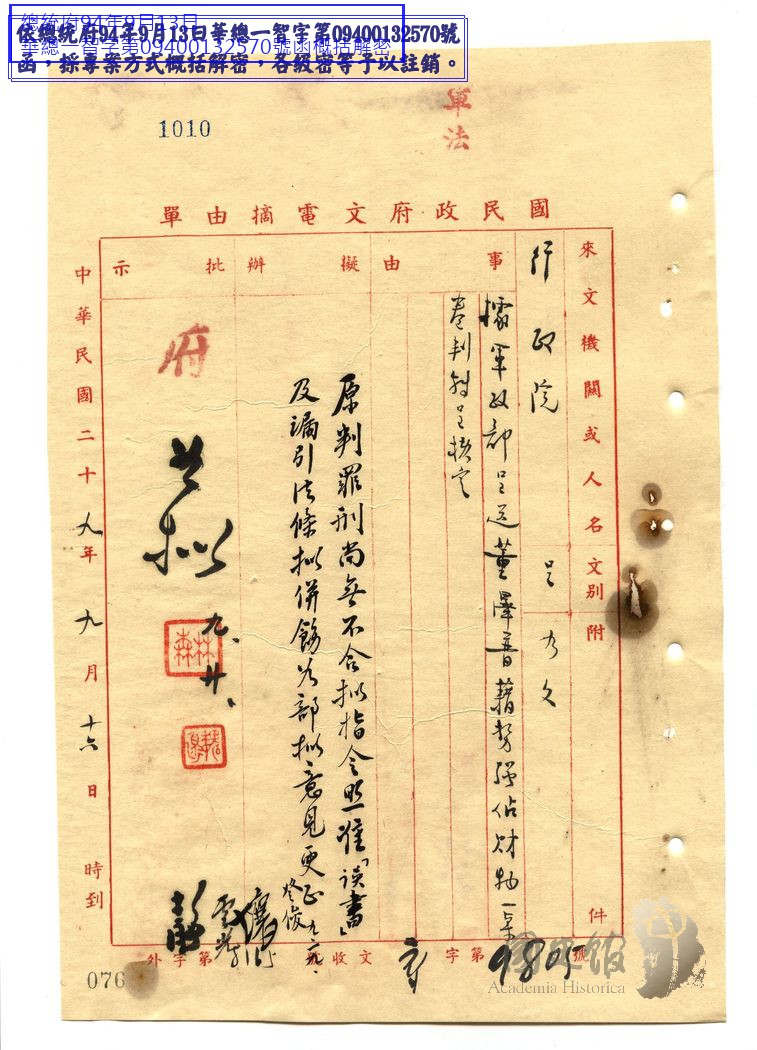 總統府94年9月13日
華總一智字第09400132570號函概括解密
依總統府94年9月13日華總一智字第09400132570號
函，採專案方式概括解密，各級密等予以註銷。
1010
軍法
國民政府文電摘由單
來文機關或人名
行政院
文別
呈
附
件
事由
據軍政部呈送董澤普藉勢強佔財物一案
卷判轉呈核定
擬辦
原判罪刑尚無不合擬指令照准「誤書」
及漏引法條擬併飭該部擬意見更正
批示
府
如擬
九、廿、
林森
中華民國二十九年九月十六日時到
收文
字第9805號
外字第
076
國史館
Academia Historica